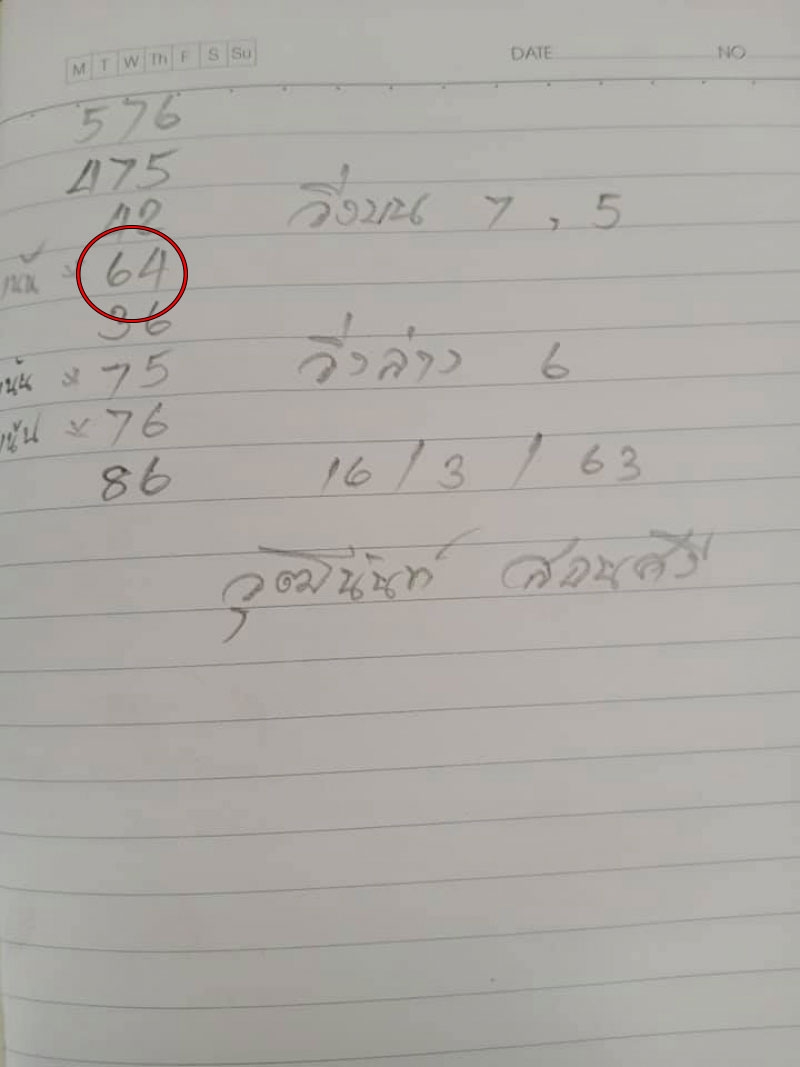 M T W Th F S Su DATE NO
576
475
42 วิ่งบน 7 , 5
เน้น × 64
36
เน้น × 75 วิ่งล่าง 6
เน้น × 76
86 16 / 3 / 63
วุฒินันท์ สอนศรี